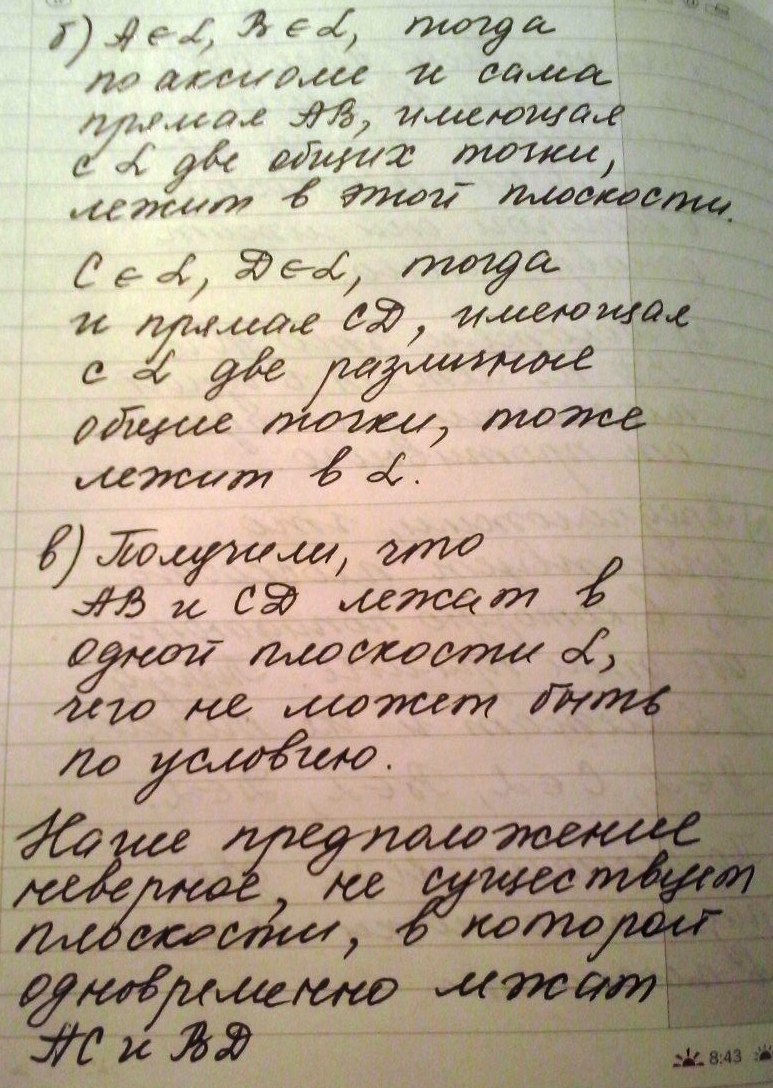 б) A ∈ α, B ∈ α, тогда
по аксиоме и сама
прямая AB, имеющая
с α две общих точки,
лежит в этой плоскости.
C ∈ α, D ∈ α, тогда
и прямая CD, имеющая
с α две различные
общие точки, тоже
лежит в α.
в) Получили, что
AB и CD лежат в
одной плоскости α,
чего не может быть
по условию.
Наше предположение
неверное, не существует
плоскости, в которой
одновременно лежат
AC и BD
8:43